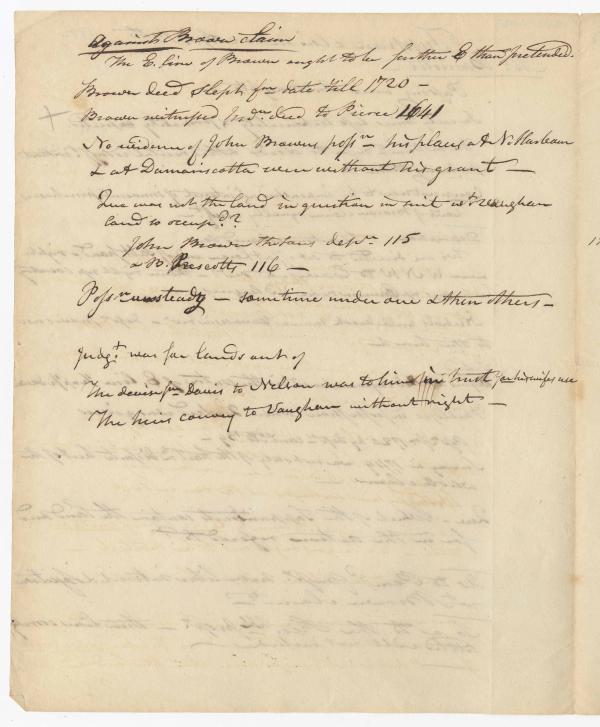 against Brown claim
The E. line of Brown ought to be further E than pretended.
Brown deed slept fm date till 1720 —
Brown witnessed Indn. deed to Pierce 1641
No evidence of John Browns possn. his places at N. Harbour
& at Damariscotta were without his grant —
Que was not the land in question in suit wt. Vaughan
land so occupd.?
John Brown the 3ds depn. 115
& B. Prescotts 116 —
Possn unsteady — sometime under one & then others —
Judgt. was for lands out of
The devise fm Davis to Nelson was to him in trust for his wifes use
The heirs convey to Vaughan without right —